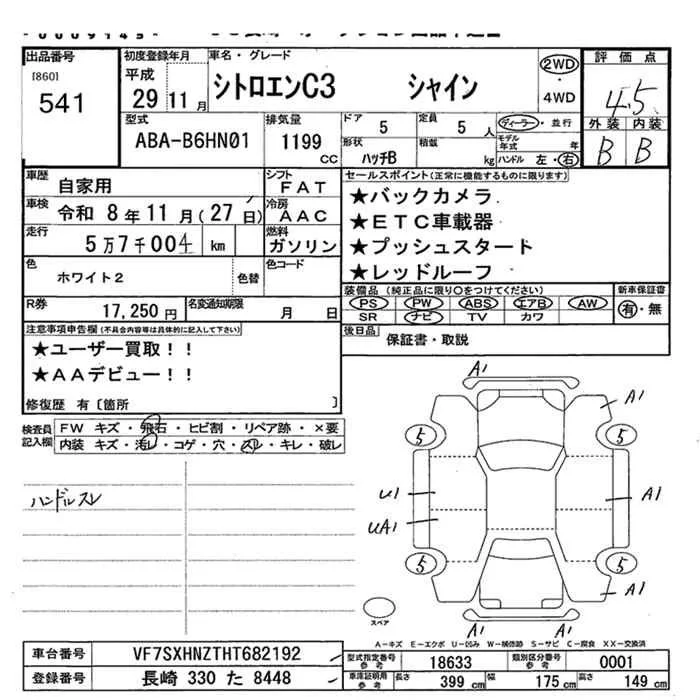 出品番号
[860]
541
初度登録年月
平成
29 11 月
車名・グレード
シトロエンC3 シャイン
2WD
・
4WD
評価点
4.5
外装 内装
B B
型式
ABA-B6HN01
排気量
1199
cc
ドア 5
定員 5 人
ディーラー・並行
形状 ハッチB
積載 kg
モデル年式 年
ハンドル 左・右
車歴 自家用
シフト FAT
車検 令和 8年11月(27日)
冷房 AAC
走行 5万7千004 km
燃料 ガソリン
色 ホワイト2
色替
色コード
セールスポイント(正常に機能するものに限ります)
★バックカメラ
★ETC車載器
★プッシュスタート
★レッドルーフ
R券 17,250円
名変通知期限 月 日
装備品(純正品に限り○をつけてください)
PS PW ABS エアB AW
SR ナビ TV カワ
新車保証書
有・無
後日品 保証書・取説
注意事項申告欄(不具合内容等は具体的に記入して下さい)
★ユーザー買取!!
★AAデビュー!!
修復歴 有[箇所 ]
検査員記入欄
FW キズ・飛石・ヒビ割・リペア跡・×要
内装 キズ・汚レ・コゲ・穴・スレ・キレ・破レ
ハンドルスレ
A1
A1
5
5
U1
A1
UA1
5
5
A1
A1
スペア
A−キズ E−エクボ U−凹み W−補修跡 S−サビ C−腐食 XX−交換済
車台番号 VF7SXHNZTHT682192
登録番号 長崎 330 た 8448
型式指定番号 参考 18633
類別区分番号 参考 0001
車庫証明用 参考 長さ 399 cm 幅 175 cm 高さ 149 cm